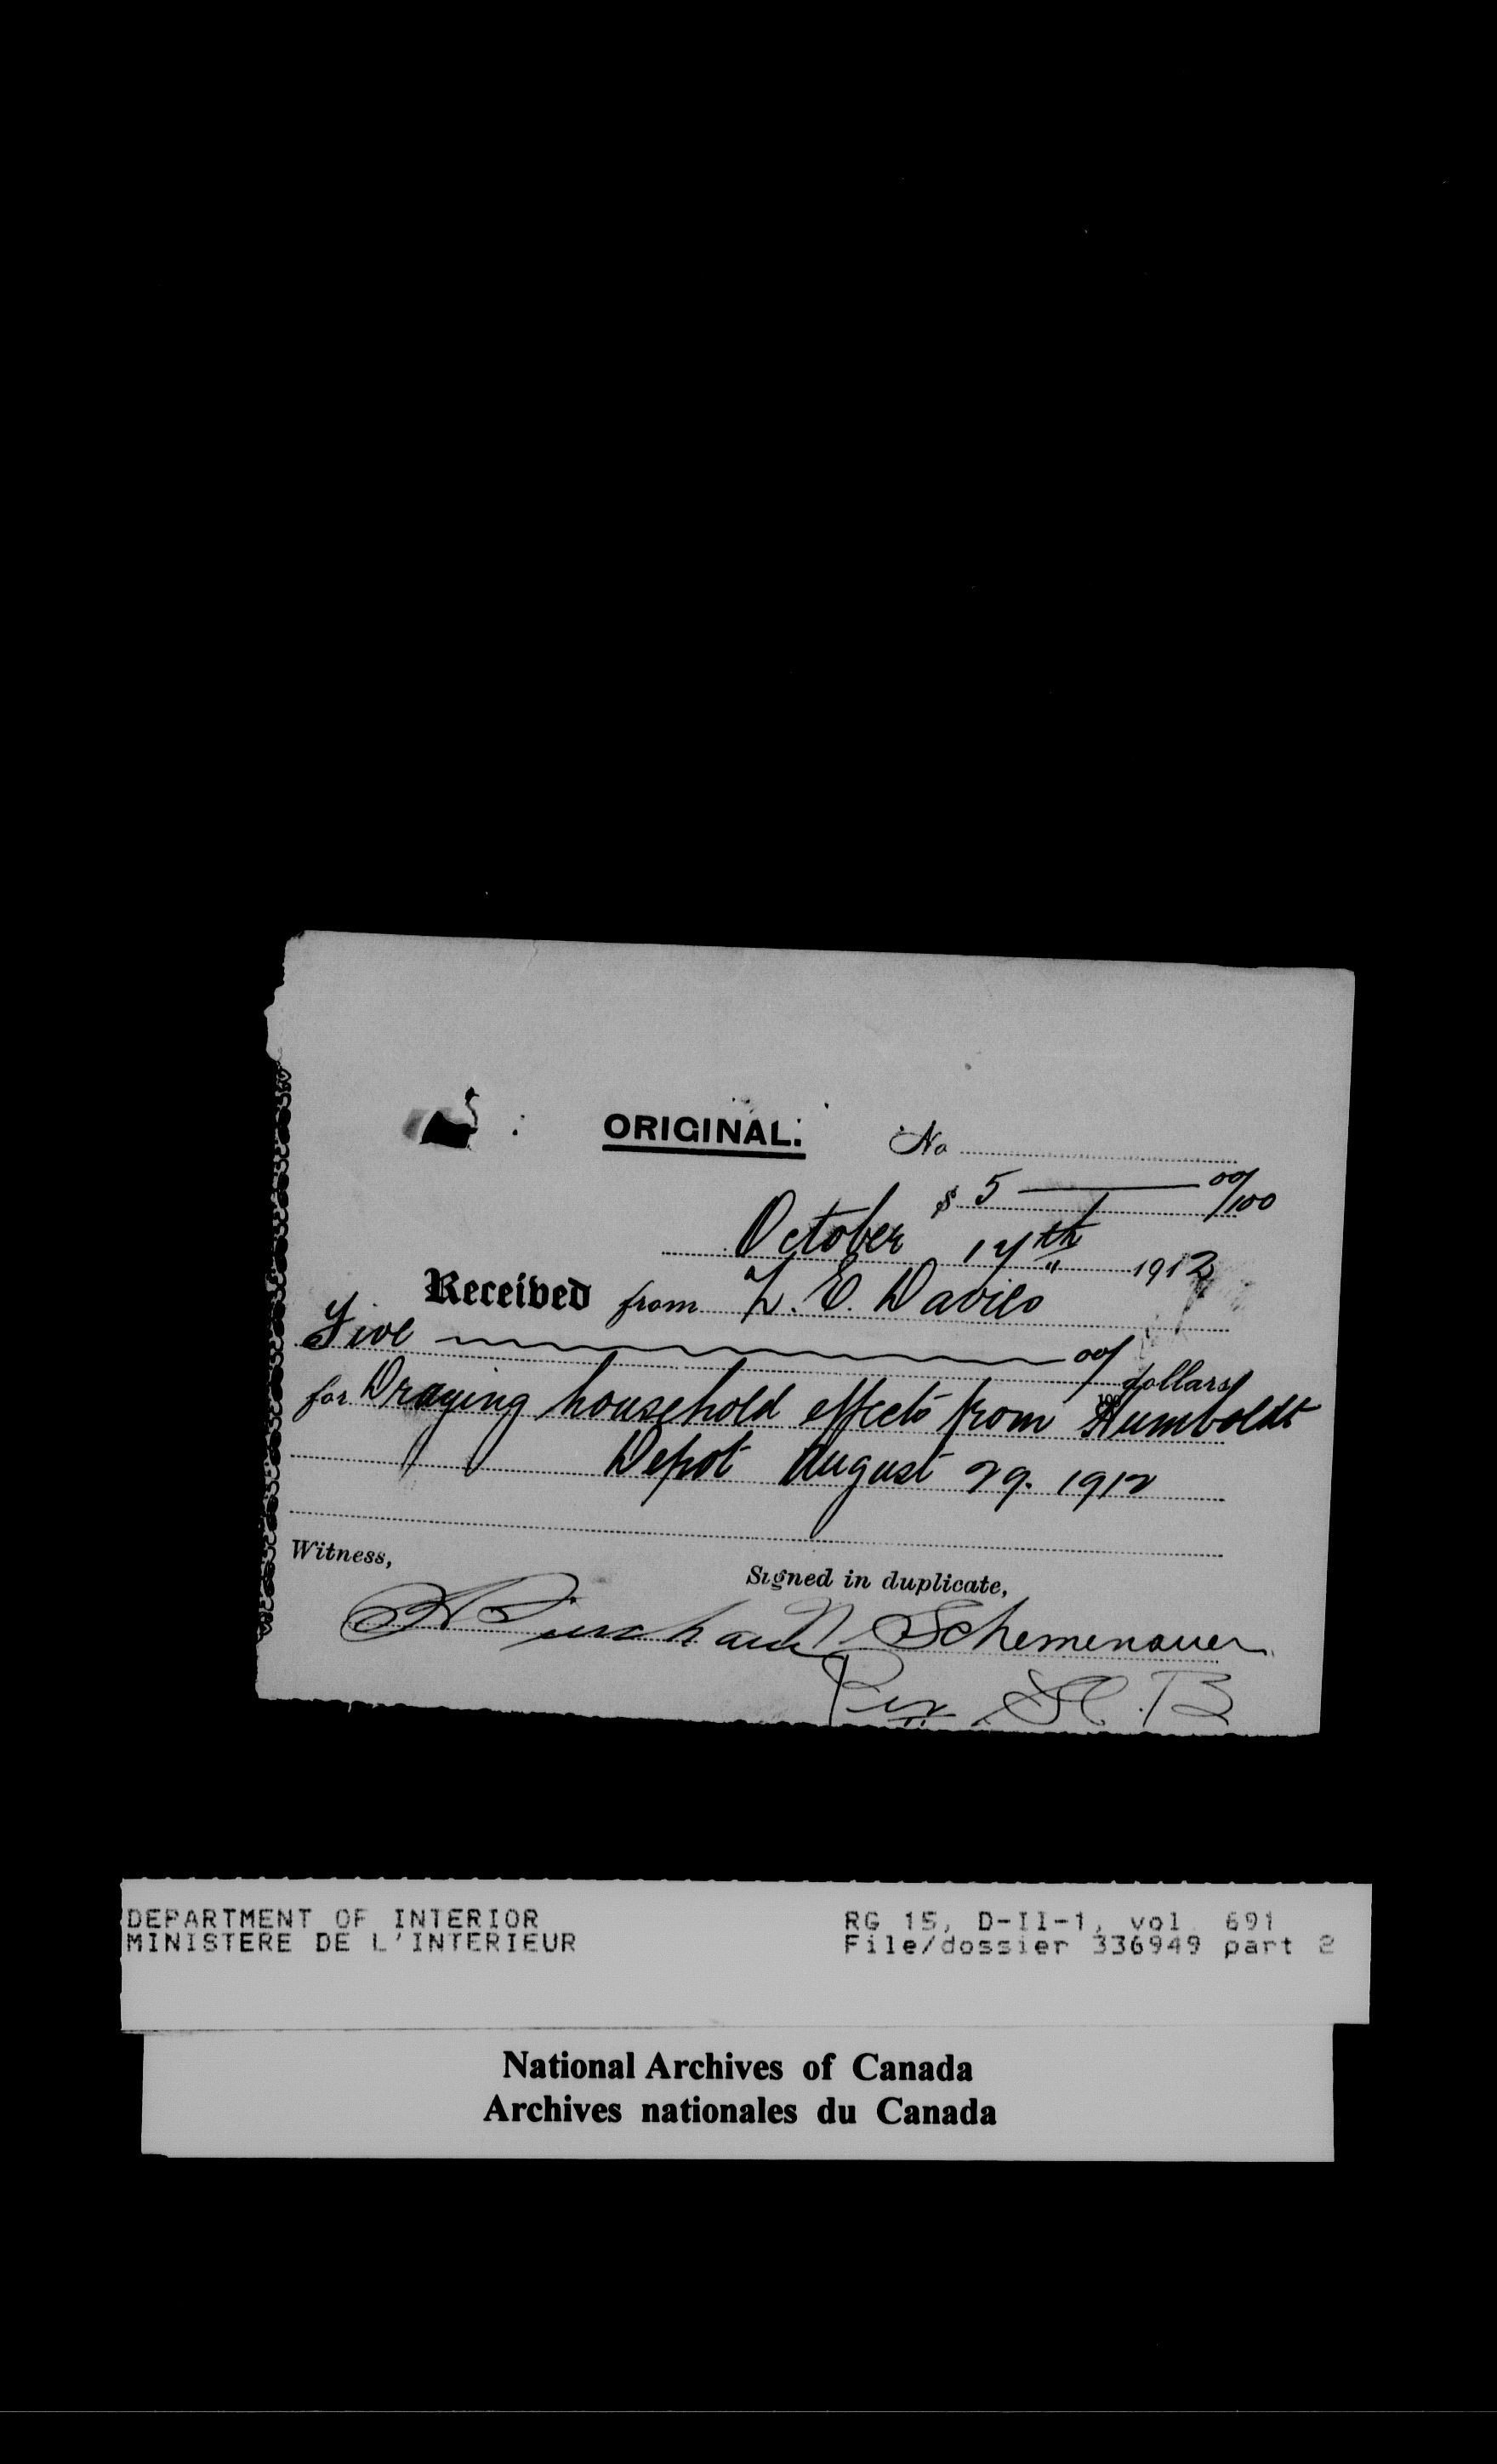 ORIGINAL.
No
$ 5 00/100
October 17th 1912
Received from L. E. Davies
Five 00/100 dollars
for Draying household effects from Humboldt
Depot August 29. 1912
Witness,
Signed in duplicate,
N Schemenauer
Per H. B
DEPARTMENT OF INTERIOR
MINISTERE DE L'INTERIEUR
RG 15, D-II-1, vol 691
File/dossier 336949 part 2
National Archives of Canada
Archives nationales du Canada